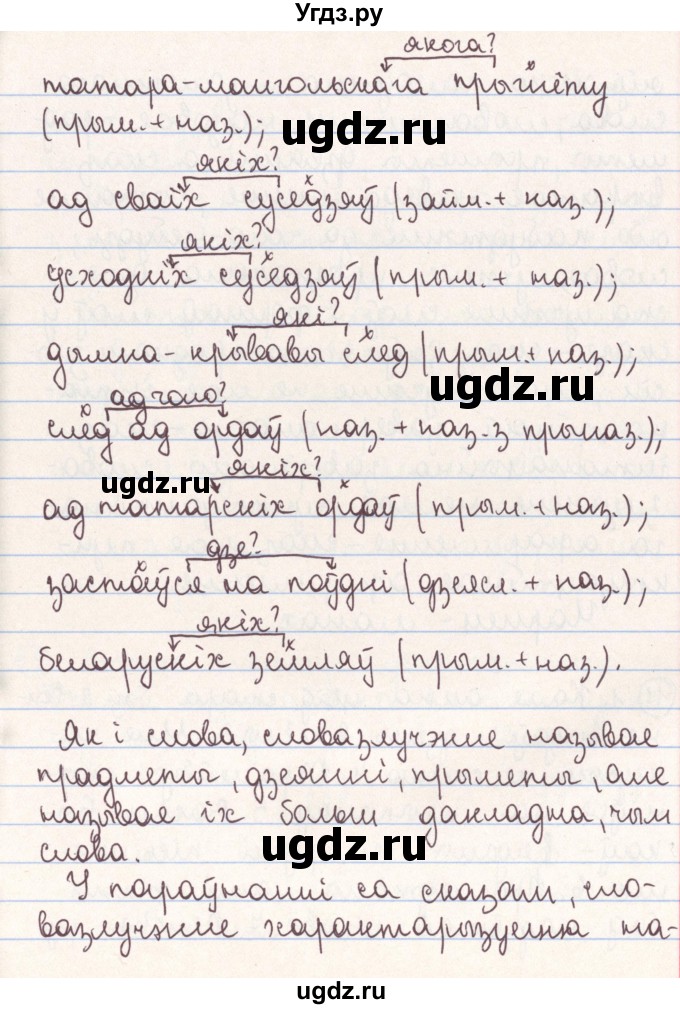 Угдз.ру
якога?
татара-мангольскага прыгнёту
(прым. + наз.);
якіх?
ад сваіх суседзяў (займ. + наз.);
якіх?
усходніх суседзяў (прым. + наз.);
які?
дымна-крывавы след (прым. + наз.);
ад чаго?
след ад ордаў (наз. + наз. з прыназ.);
якіх?
ад татарскіх ордаў (прым. + наз.);
дзе?
застаўся на поўдні (дзеясл. + наз.);
якіх?
беларускіх земляў (прым. + наз.).
Як і слова, словазлучэнне называе
прадметы, дзеянні, прыметы, але
называе іх больш дакладна, чым
слова.
У параўнанні са сказам, сло-
вазлучэнне характарызуецца на-
ugdz.ru
ugdz.ru
ugdz.ru
ugdz.ru
ugdz.ru
ugdz.ru
ugdz.ru